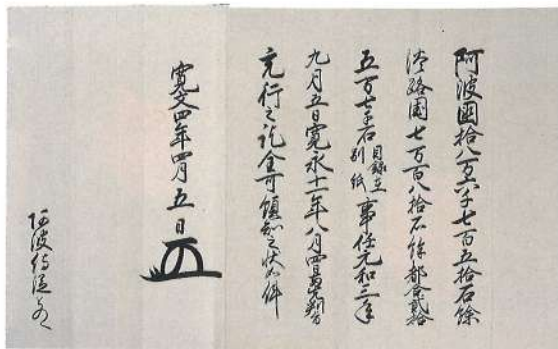 阿波國拾八万六千七百五拾石餘
淡路國七万百八拾石餘都合貳拾
五万七千石目録在別紙事任元和三年
九月五日寛永十一年八月四日先判旨
充行之訖全可領知之状如件
寛文四年四月五日
阿波侍従とのへ